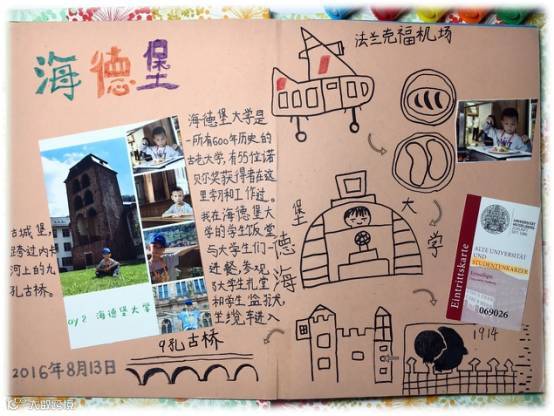 海德堡
海德堡大学是
一所有600年历史的
古老大学,有55位诺
贝尔奖获得者在这
里学习和工作过。
我在海德堡大
学的学生饭堂
与大学生们一起
进餐,参观
大学生礼堂
和学生监狱尤
进入
古城堡,
跨过内卡
河上的九
孔古桥。
ay 2 海德堡大学
9孔古桥
2016年8月13日
法兰克福机场
海德堡大学
1914
Eintrittskarte
UNIVERSITÄT
HEIDELBERG
ALTE UNIVERSITÄT
UND
STUDENTENKARZER
069026